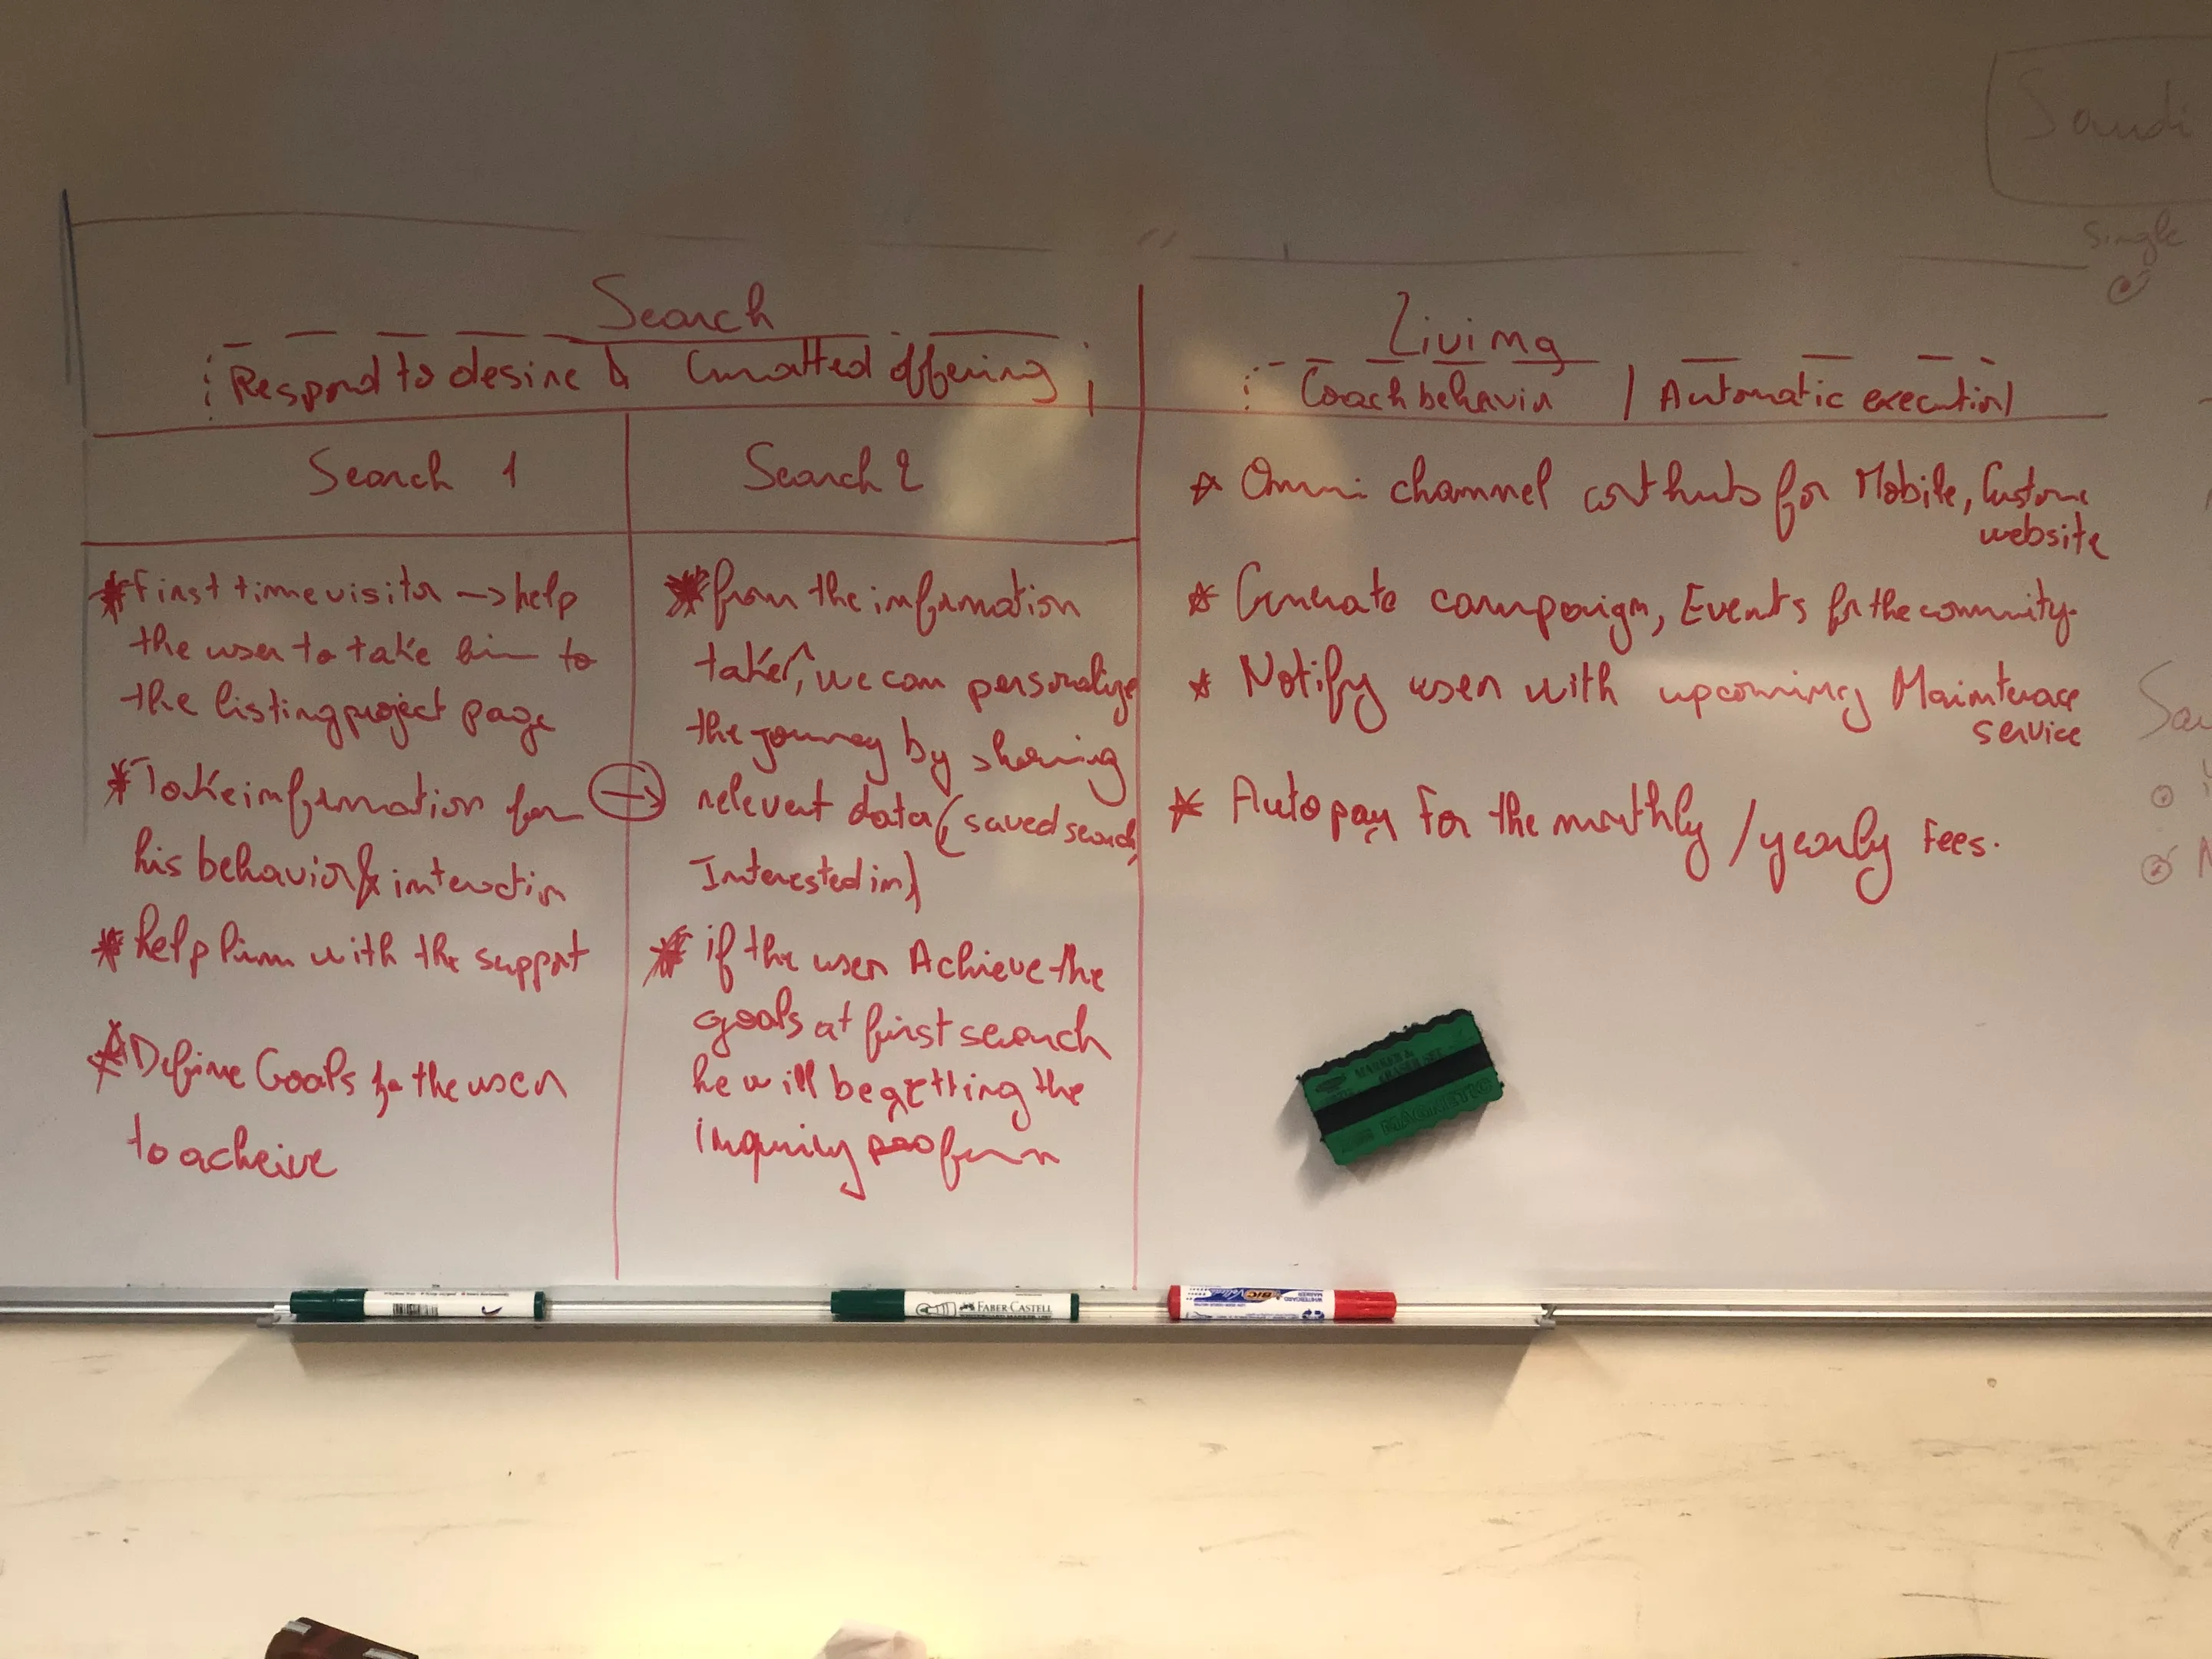 Search
Respond to desire & Curatted offering
Search 1
* First time visitor → help
the user to take him to
the listing project page
* Take information for
his behavior & interaction
* help him with the support
* Define Goals for the user
to acheive
Search 2
* from the information
taken, we can personalize
the journey by sharing
relevent data (saved search,
Interested in)
* if the user Achieve the
goals at first search
he will be getting the
inquiry form
Living
Coach behavior / Automatic execution
* Omni channel for Mobile, Custome
website
* Generate campaign, Events for the community.
* Notify user with upcoming Maintenace
service
* Auto pay For the monthly / yearly Fees.
Saudi
single
MARKER &
MAGNETIC
FABER-CASTELL
BIC Velleda
WHITEBOARD
MARKER